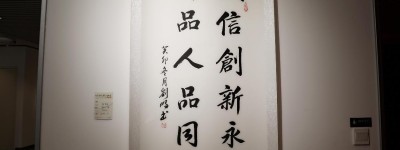 信創新永
品人品同
癸卯冬月劉明書